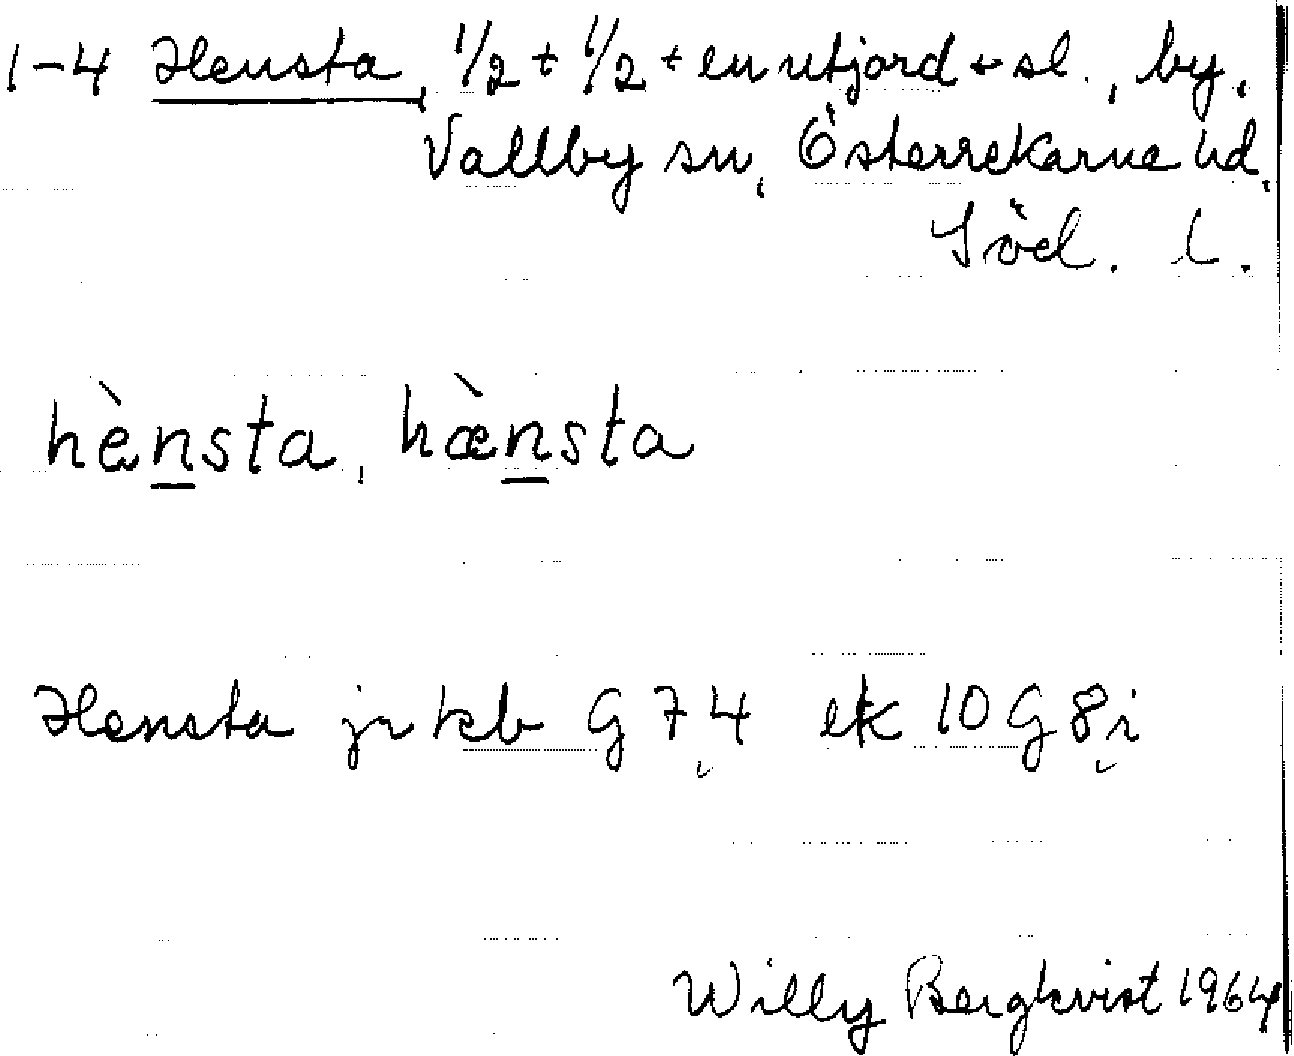 1-4 Hensta, 1/2 + 1/2 + en utjord + sl., by,
Vallby sn, Österrekarne hd,
Söd. l.
hènsta, hæ̀nsta
Hensta jr kb G 7 4 ek 10 G 8 i
Willy Bergkvist 1964